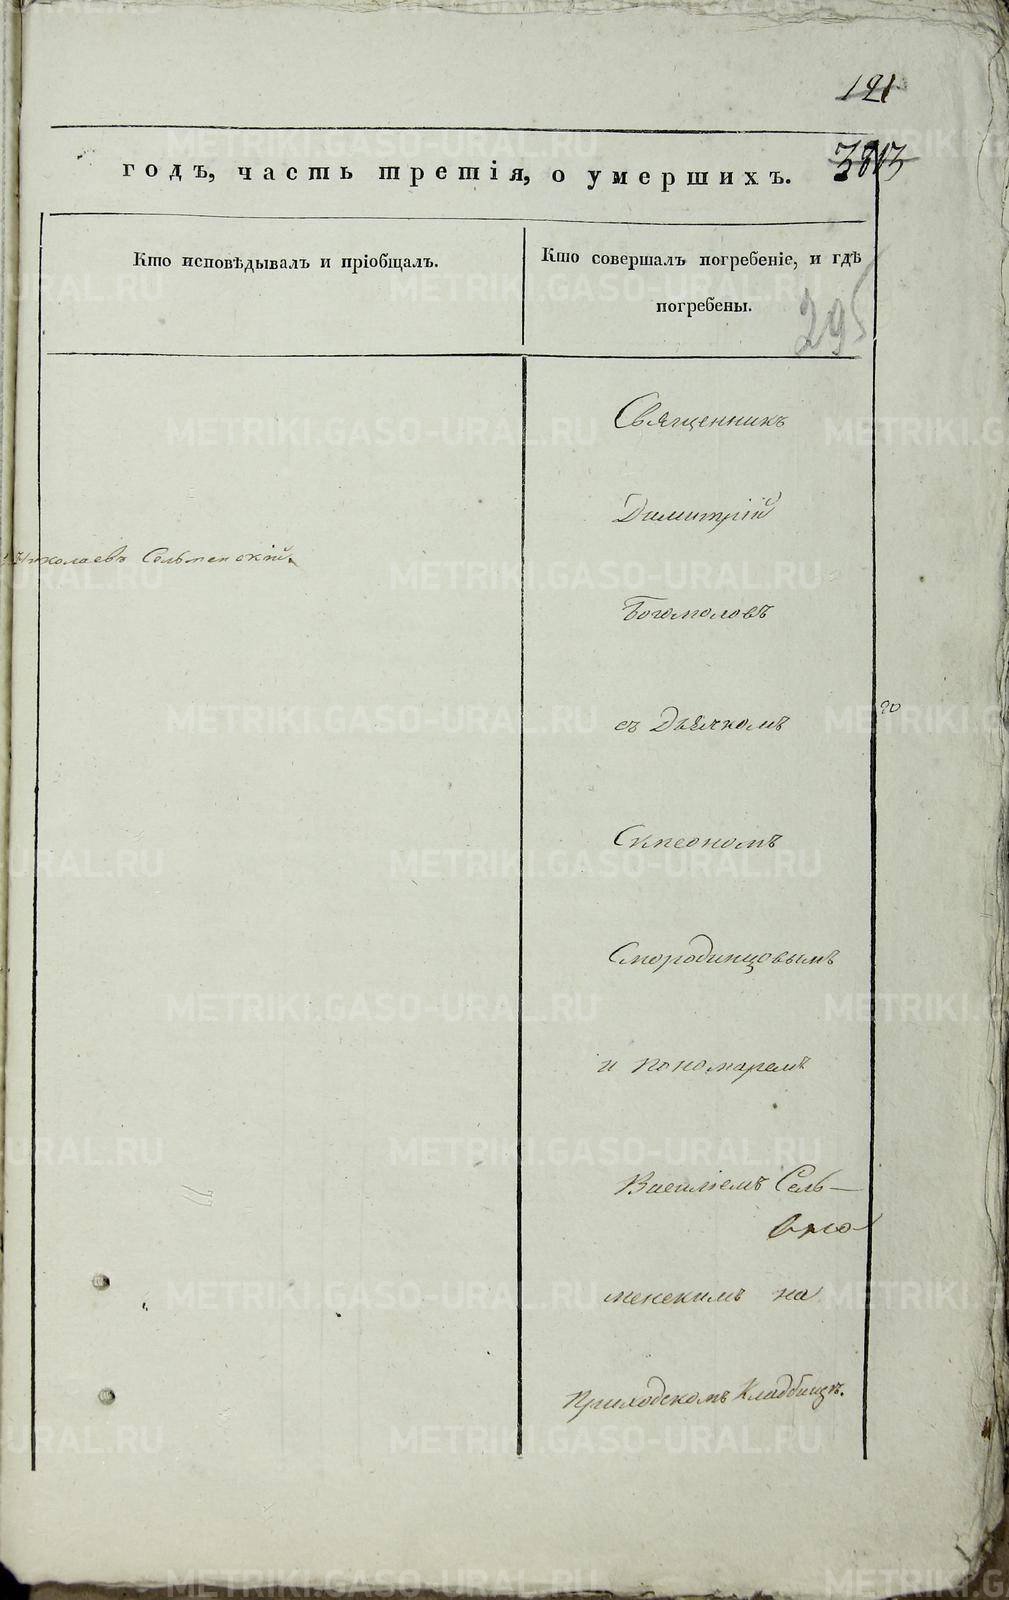 121
годъ, часть третія, о умершихъ.
Кто исповѣдывалъ и пріобщалъ.
Кто совершалъ погребеніе, и гдѣ
погребены.
295
Священникъ
Димитрій
Николаевъ Сельменскій.
Богомоловъ
съ Дьячкомъ
Симеономъ
Смородинцовымъ
и пономаремъ
Василіемъ Сель-
менскимъ на
Приходскомъ Кладбищѣ.
METRIKI.GASO-URAL.RU